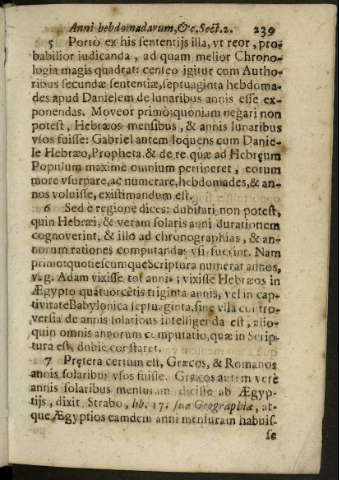 Anni hebdomadarum, &c. Sect. 2. 239
5 Porto ex his sententijs illa, vt reor, pro-
babilior iudicanda, ad quam melior Chrono-
logia magis quadrat: censeo igitur cum Autho-
ribus secundæ sententiæ, septuaginta hebdoma-
des apud Danielem de lunaribus annis esse ex-
ponendas. Moveor primò; quoniam negari non
potest, Hebræos mensibus, & annis lunaribus
vsos fuisse: Gabriel autem loquens cum Danie-
le Hebræo, Propheta & de re quæ ad Hebręum
Populum maxime omnium pertineret, eorum
more vsurpare, ac numerare, hebdomades, & an-
nos voluisse, existimandum est.
6 Sed è regione dices: dubitari non potest,
quin Hebræi, & veram solaris anni durationem
cognoverint, & illo ad chronographias, & an-
norum rationes computandas vsi fuerint. Nam
primò quotiescumque Scriptura numerat annos,
v. g. Adam vixisse tot annis; vixisse Hebræos in
Ægypto quatuorcētis triginta annis, vel in cap-
tivitate Babylonica septuaginta, sine vlla contro-
versia de annis solaribus intelligenda est, alio-
quin omnis annorum computatio, quæ in Scrip-
tura est, dubie constaret.
7 Prętera certum est, Græcos, & Romanos
annis solaribus vsos fuisse. Græcos autem verè
annis solaribus mensuram didisse ab Ægyp-
tijs, dixit Strabo, lib. 17. suæ Geographiæ, at-
que Ægyptios eamdem anni mensuram habuis-
se